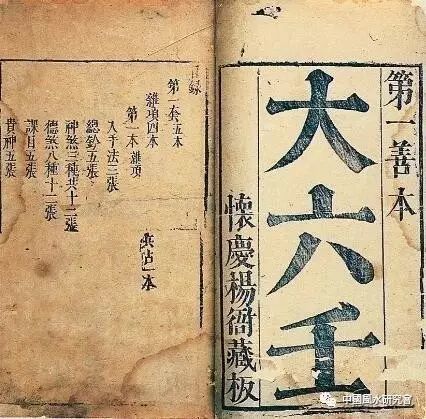 第一善本
大六壬
懷慶楊衙藏板
目錄
第一套五本
雜項四本
第一本雜項
入手法三張
總鈐五張
神煞三種共十二張
德煞八種十二張
課目五張
貴神五張
兵占一本
中國風水研究官